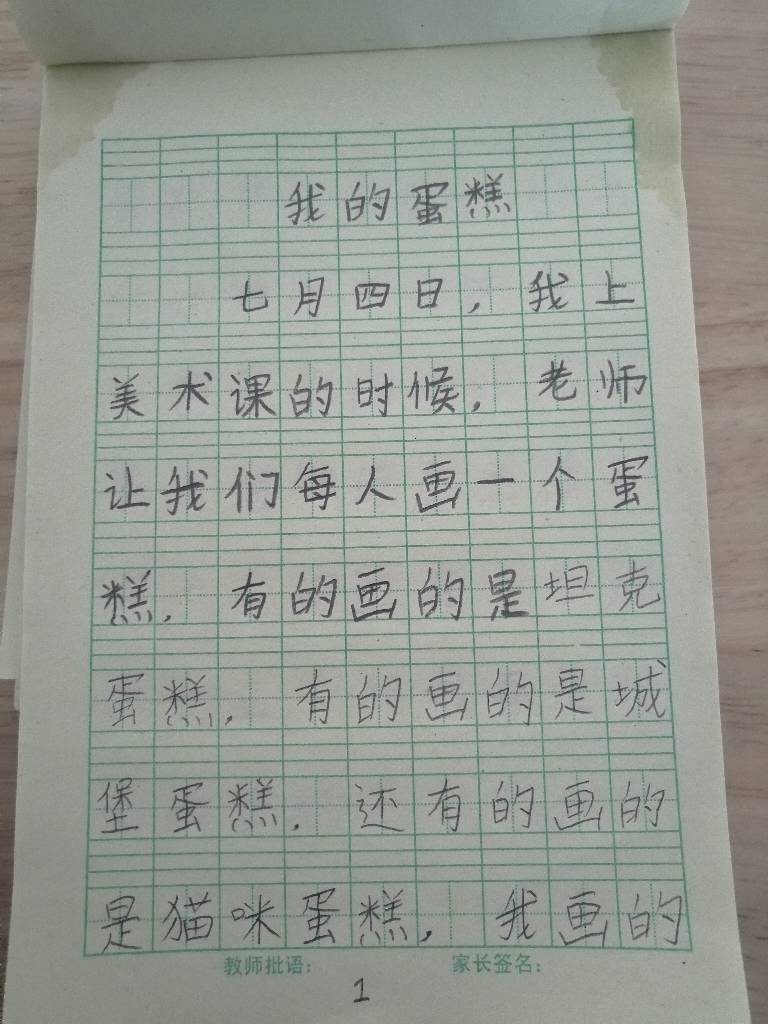 我的蛋糕
七月四日，我上
美术课的时候，老师
让我们每人画一个蛋
糕，有的画的是坦克
蛋糕，有的画的是城
堡蛋糕，还有的画的
是猫咪蛋糕，我画的
教师批语： 家长签名：
1